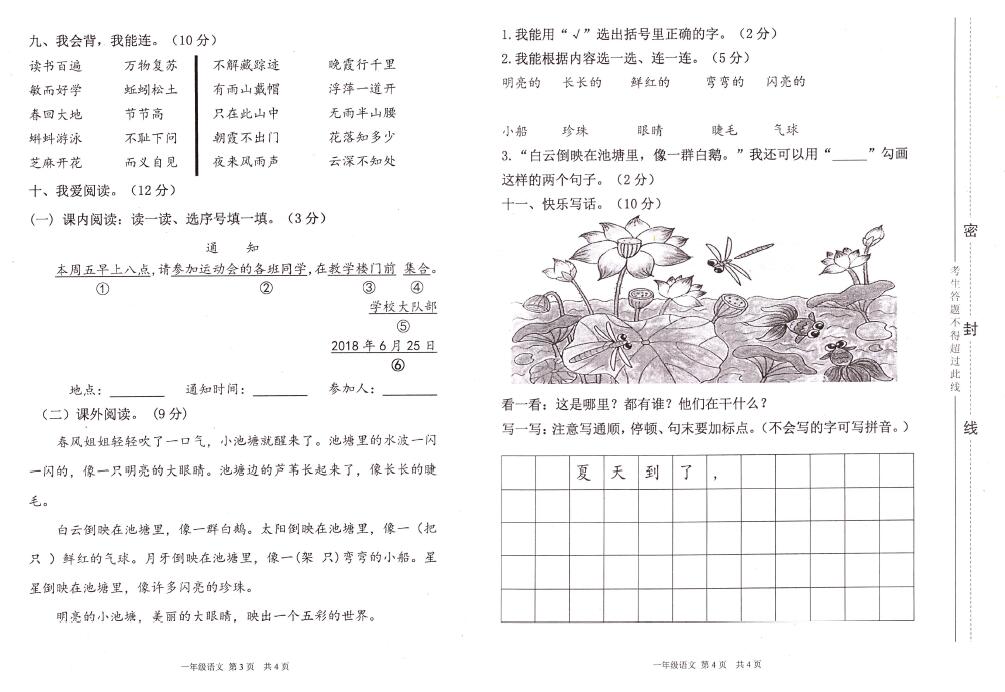 九、我会背，我能连。（10 分）
读书百遍 万物复苏 不解藏踪迹 晚霞行千里
敏而好学 蚯蚓松土 有雨山戴帽 浮萍一道开
春回大地 节节高 只在此山中 无雨半山腰
蝌蚪游泳 不耻下问 朝霞不出门 花落知多少
芝麻开花 而义自见 夜来风雨声 云深不知处
十、我爱阅读。（12 分）
(一) 课内阅读：读一读、选序号填一填。（3 分）
通 知
本周五早上八点，请参加运动会的各班同学，在教学楼门前 集合。
① ② ③ ④
学校大队部
⑤
2018 年 6 月 25 日
⑥
地点：________ 通知时间：________ 参加人：________
（二）课外阅读。（9 分）
春风姐姐轻轻吹了一口气，小池塘就醒来了。池塘里的水波一闪
一闪的，像一只明亮的大眼睛。池塘边的芦苇长起来了，像长长的睫
毛。
白云倒映在池塘里，像一群白鹅。太阳倒映在池塘里，像一（把
只 ）鲜红的气球。月牙倒映在池塘里，像一(架 只)弯弯的小船。星
星倒映在池塘里，像许多闪亮的珍珠。
明亮的小池塘，美丽的大眼睛，映出一个五彩的世界。
一年级语文 第 3 页 共 4 页
1.我能用“√”选出括号里正确的字。（2 分）
2.我能根据内容选一选、连一连。（5 分）
明亮的 长长的 鲜红的 弯弯的 闪亮的
小船 珍珠 眼睛 睫毛 气球
3.“白云倒映在池塘里，像一群白鹅。”我还可以用“_____”勾画
这样的两个句子。（2 分）
十一、快乐写话。（10 分）
看一看：这是哪里？都有谁？他们在干什么？
写一写：注意写通顺，停顿、句末要加标点。（不会写的字可写拼音。）
夏天到了，
一年级语文 第 4 页 共 4 页
考生答题不得超过此线
密封线